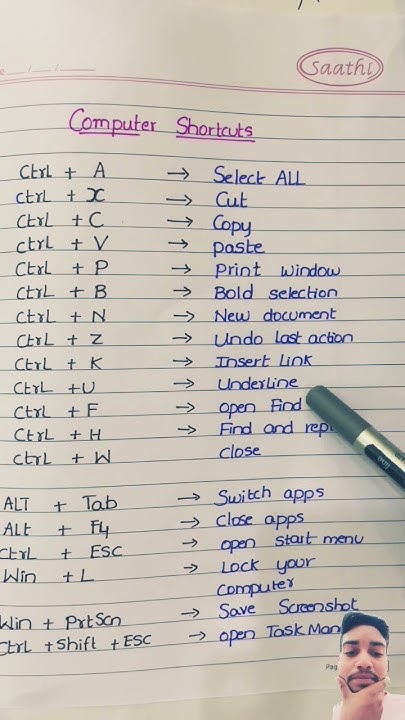 Saathi
Computer Shortcuts
Ctrl + A → Select ALL
ctrl + X → Cut
Ctrl + C → Copy
ctrl + V → paste
Ctrl + P → Print window
Ctrl + B → Bold selection
Ctrl + N → New document
Ctrl + Z → Undo last action
Ctrl + K → Insert link
Ctrl + U → Underline
Ctrl + F → open Find
Ctrl + H → Find and
Ctrl + W close
ALT + Tab → Switch apps
Alt + F4 → Close apps
Ctrl + ESC → open start menu
Win + L → Lock your
computer
Win + PrtScn → Save Screenshot
Ctrl + Shift + ESC → open Task